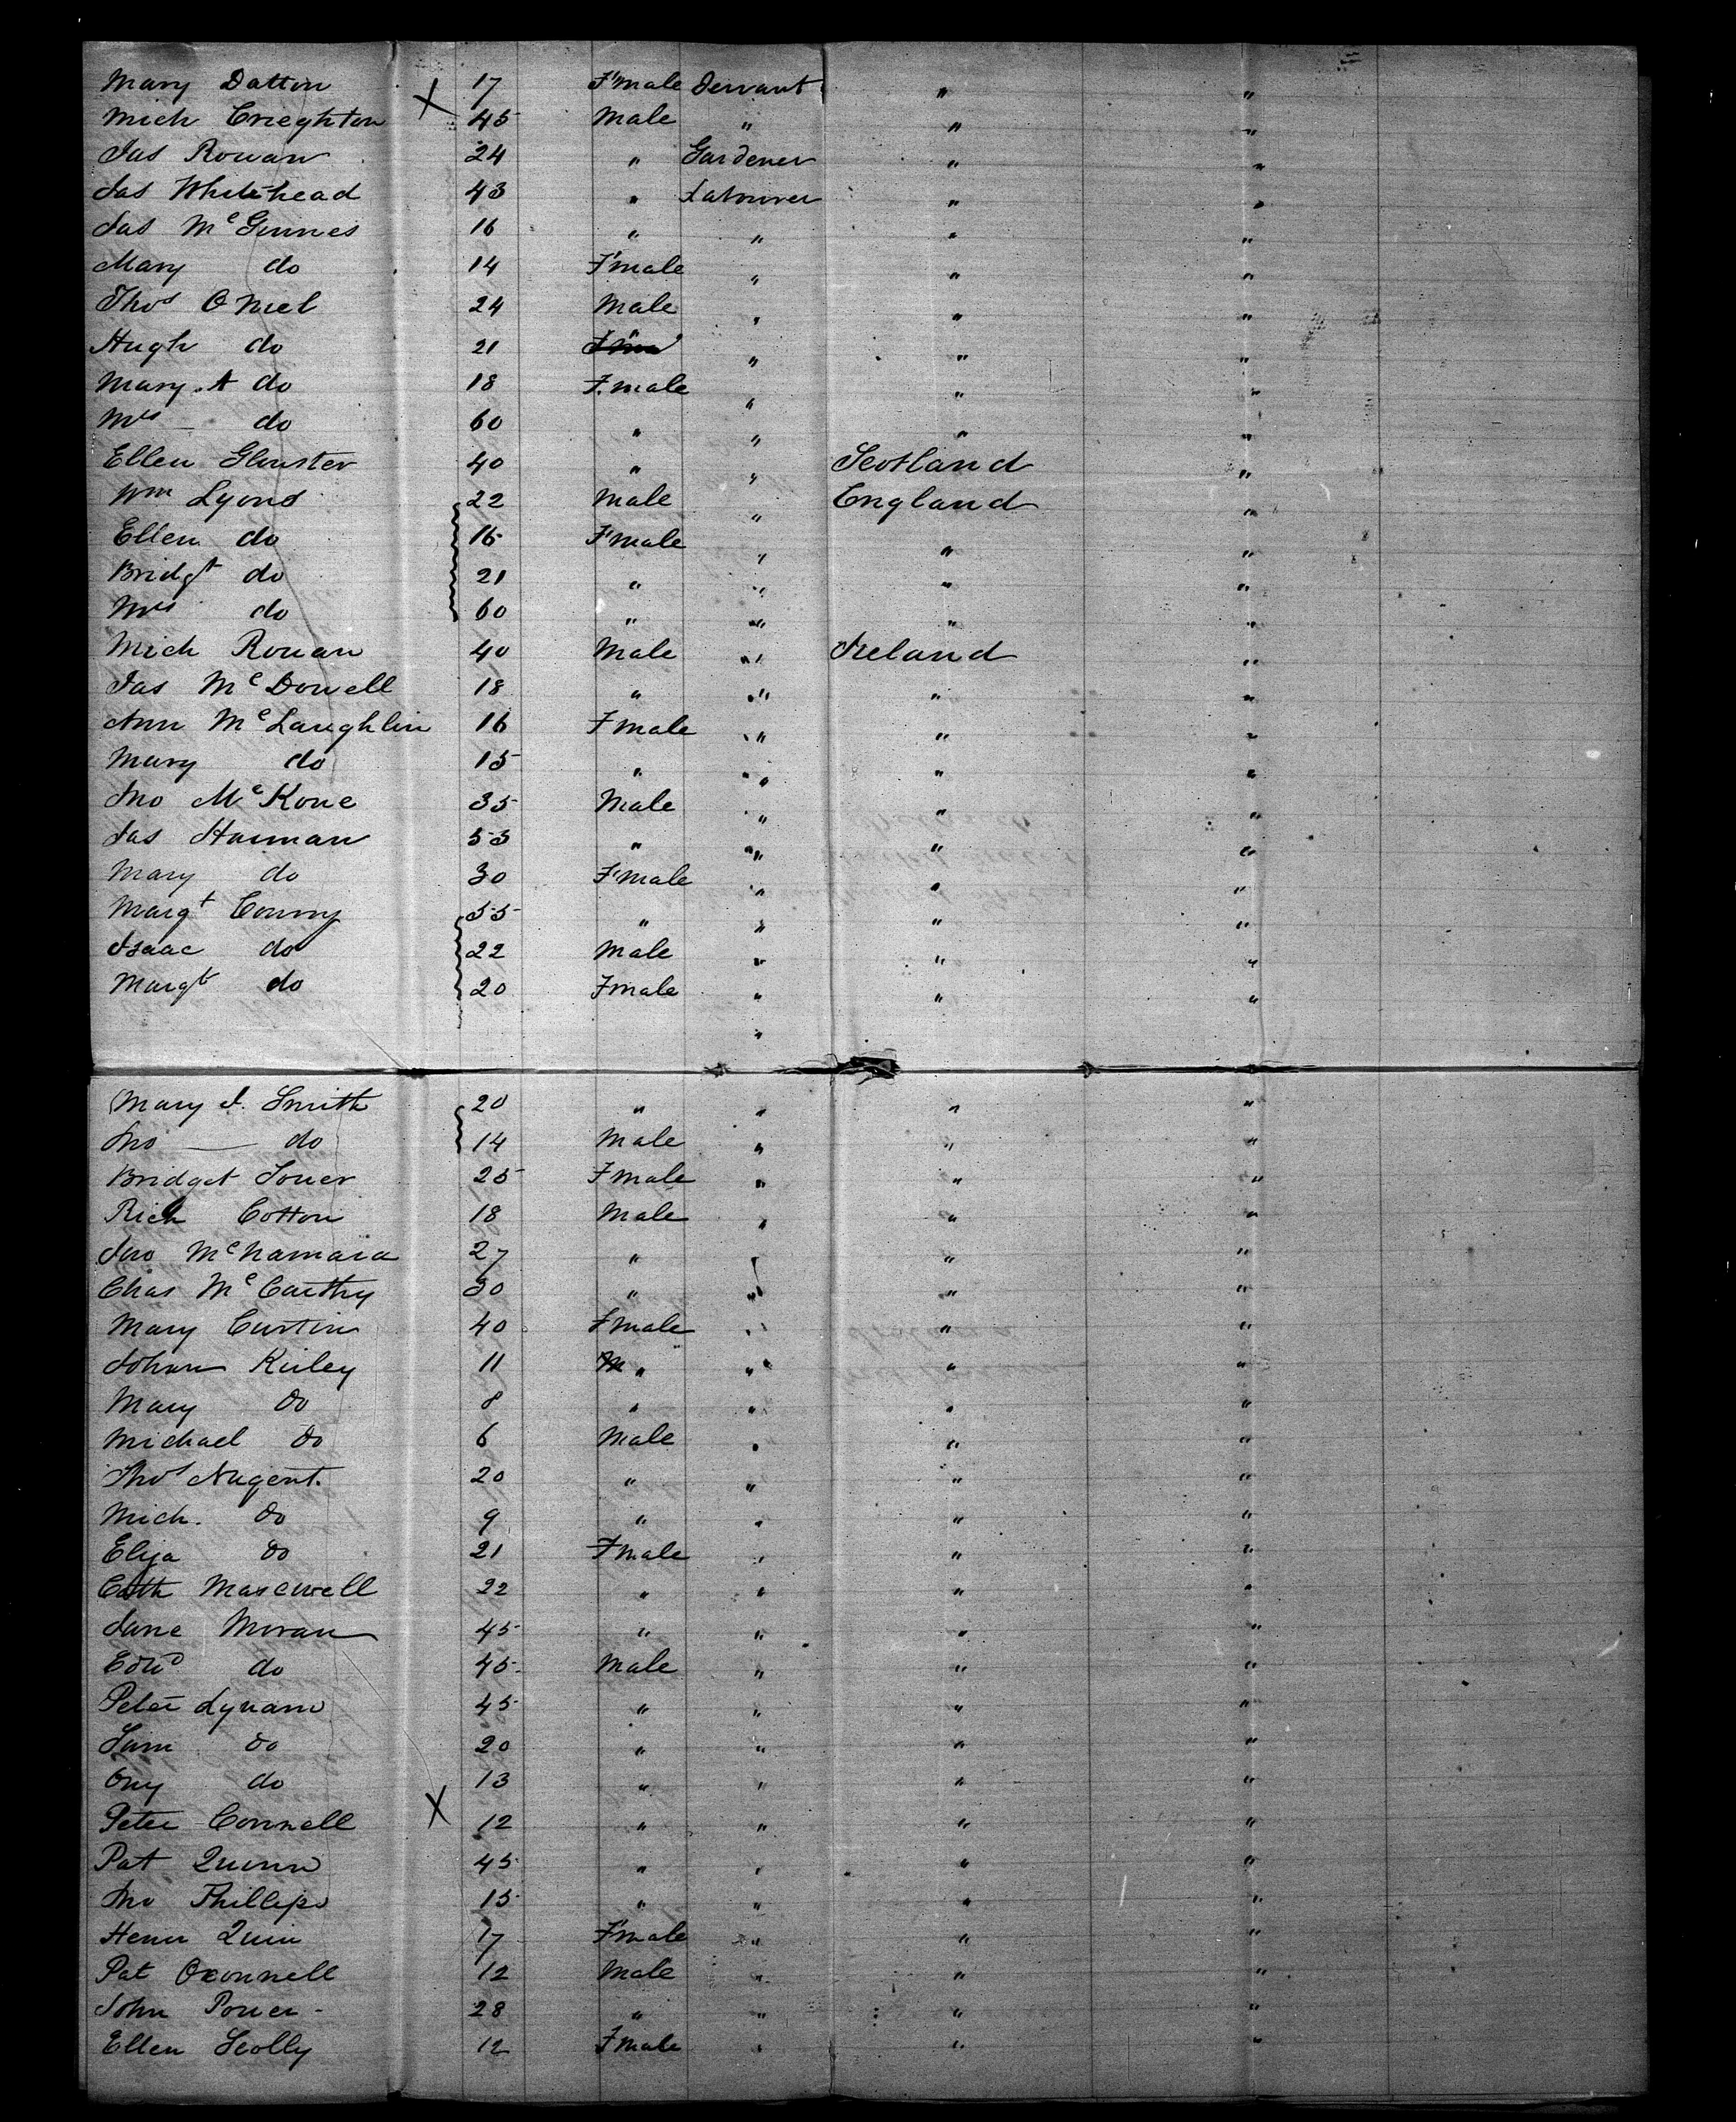 Mary Datton 17 F'male Servant " "
Mich Crieghton X 45 Male " " "
Jas Rowan 24 " Gardener " "
Jas Whitehead 43 " Labourer " "
Jas McGinnes 16 " " " "
Mary do 14 F'male " " "
Thos O Niel 24 Male " " "
Hugh do 21 " " " "
Mary A do 18 F.male " " "
Mrs — do 60 " " " "
Ellen Glouster 40 " " Scotland "
Wm Lyons 22 Male " England "
Ellen do 16 F'male " " "
Bridgt do 21 " " " "
Mrs do 60 " " " "
Mich Rouan 40 Male " Ireland "
Jas McDowell 18 " " " "
Ann McLaughlin 16 F male " " "
Mary do 15 " " " "
Jno McKone 35 Male " " "
Jas Harman " " " "
Mary do 30 F'male " " "
Margt Conroy 55 " " " "
Isaac do 22 Male " " "
Margt do 20 Fmale " " "
"
Mary J. Smith 20 " " " "
Jno — do 14 Male " " "
Bridget 25 F male " " "
Rich Cotton 18 Male " " "
Jno McNamara 27 " " " "
Chas McCarthy 30 " " " "
Mary Curtin 40 Fmale " " "
Johan Kieley 11 " " " "
Mary do 8 " " " "
Michael do 6 Male " " "
Thos Nugent. 20 " " " "
Mich. do 9 " " " "
Eliza do 21 Fmale " " "
Cath Maxwell 22 " " " "
Jane Moran 45 " " " "
Edwd do 45 Male " " "
Peter Lynam 45 " " " "
do 20 " " " "
Ony do 13 " " " "
Peter Connell X 12 " " " "
Pat Quinn 45 " " " "
Jno Phillips 15 " " " "
Quin 17 F'male " " "
Pat Oconnell 12 Male " " "
John Power - 28 " " " "
Ellen Scolly 12 Fmale " " "